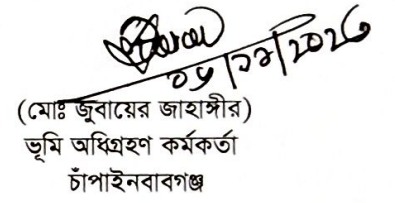 (মোঃ জুবায়ের জাহাঙ্গীর)
ভূমি অধিগ্রহণ কর্মকর্তা
চাঁপাইনবাবগঞ্জ